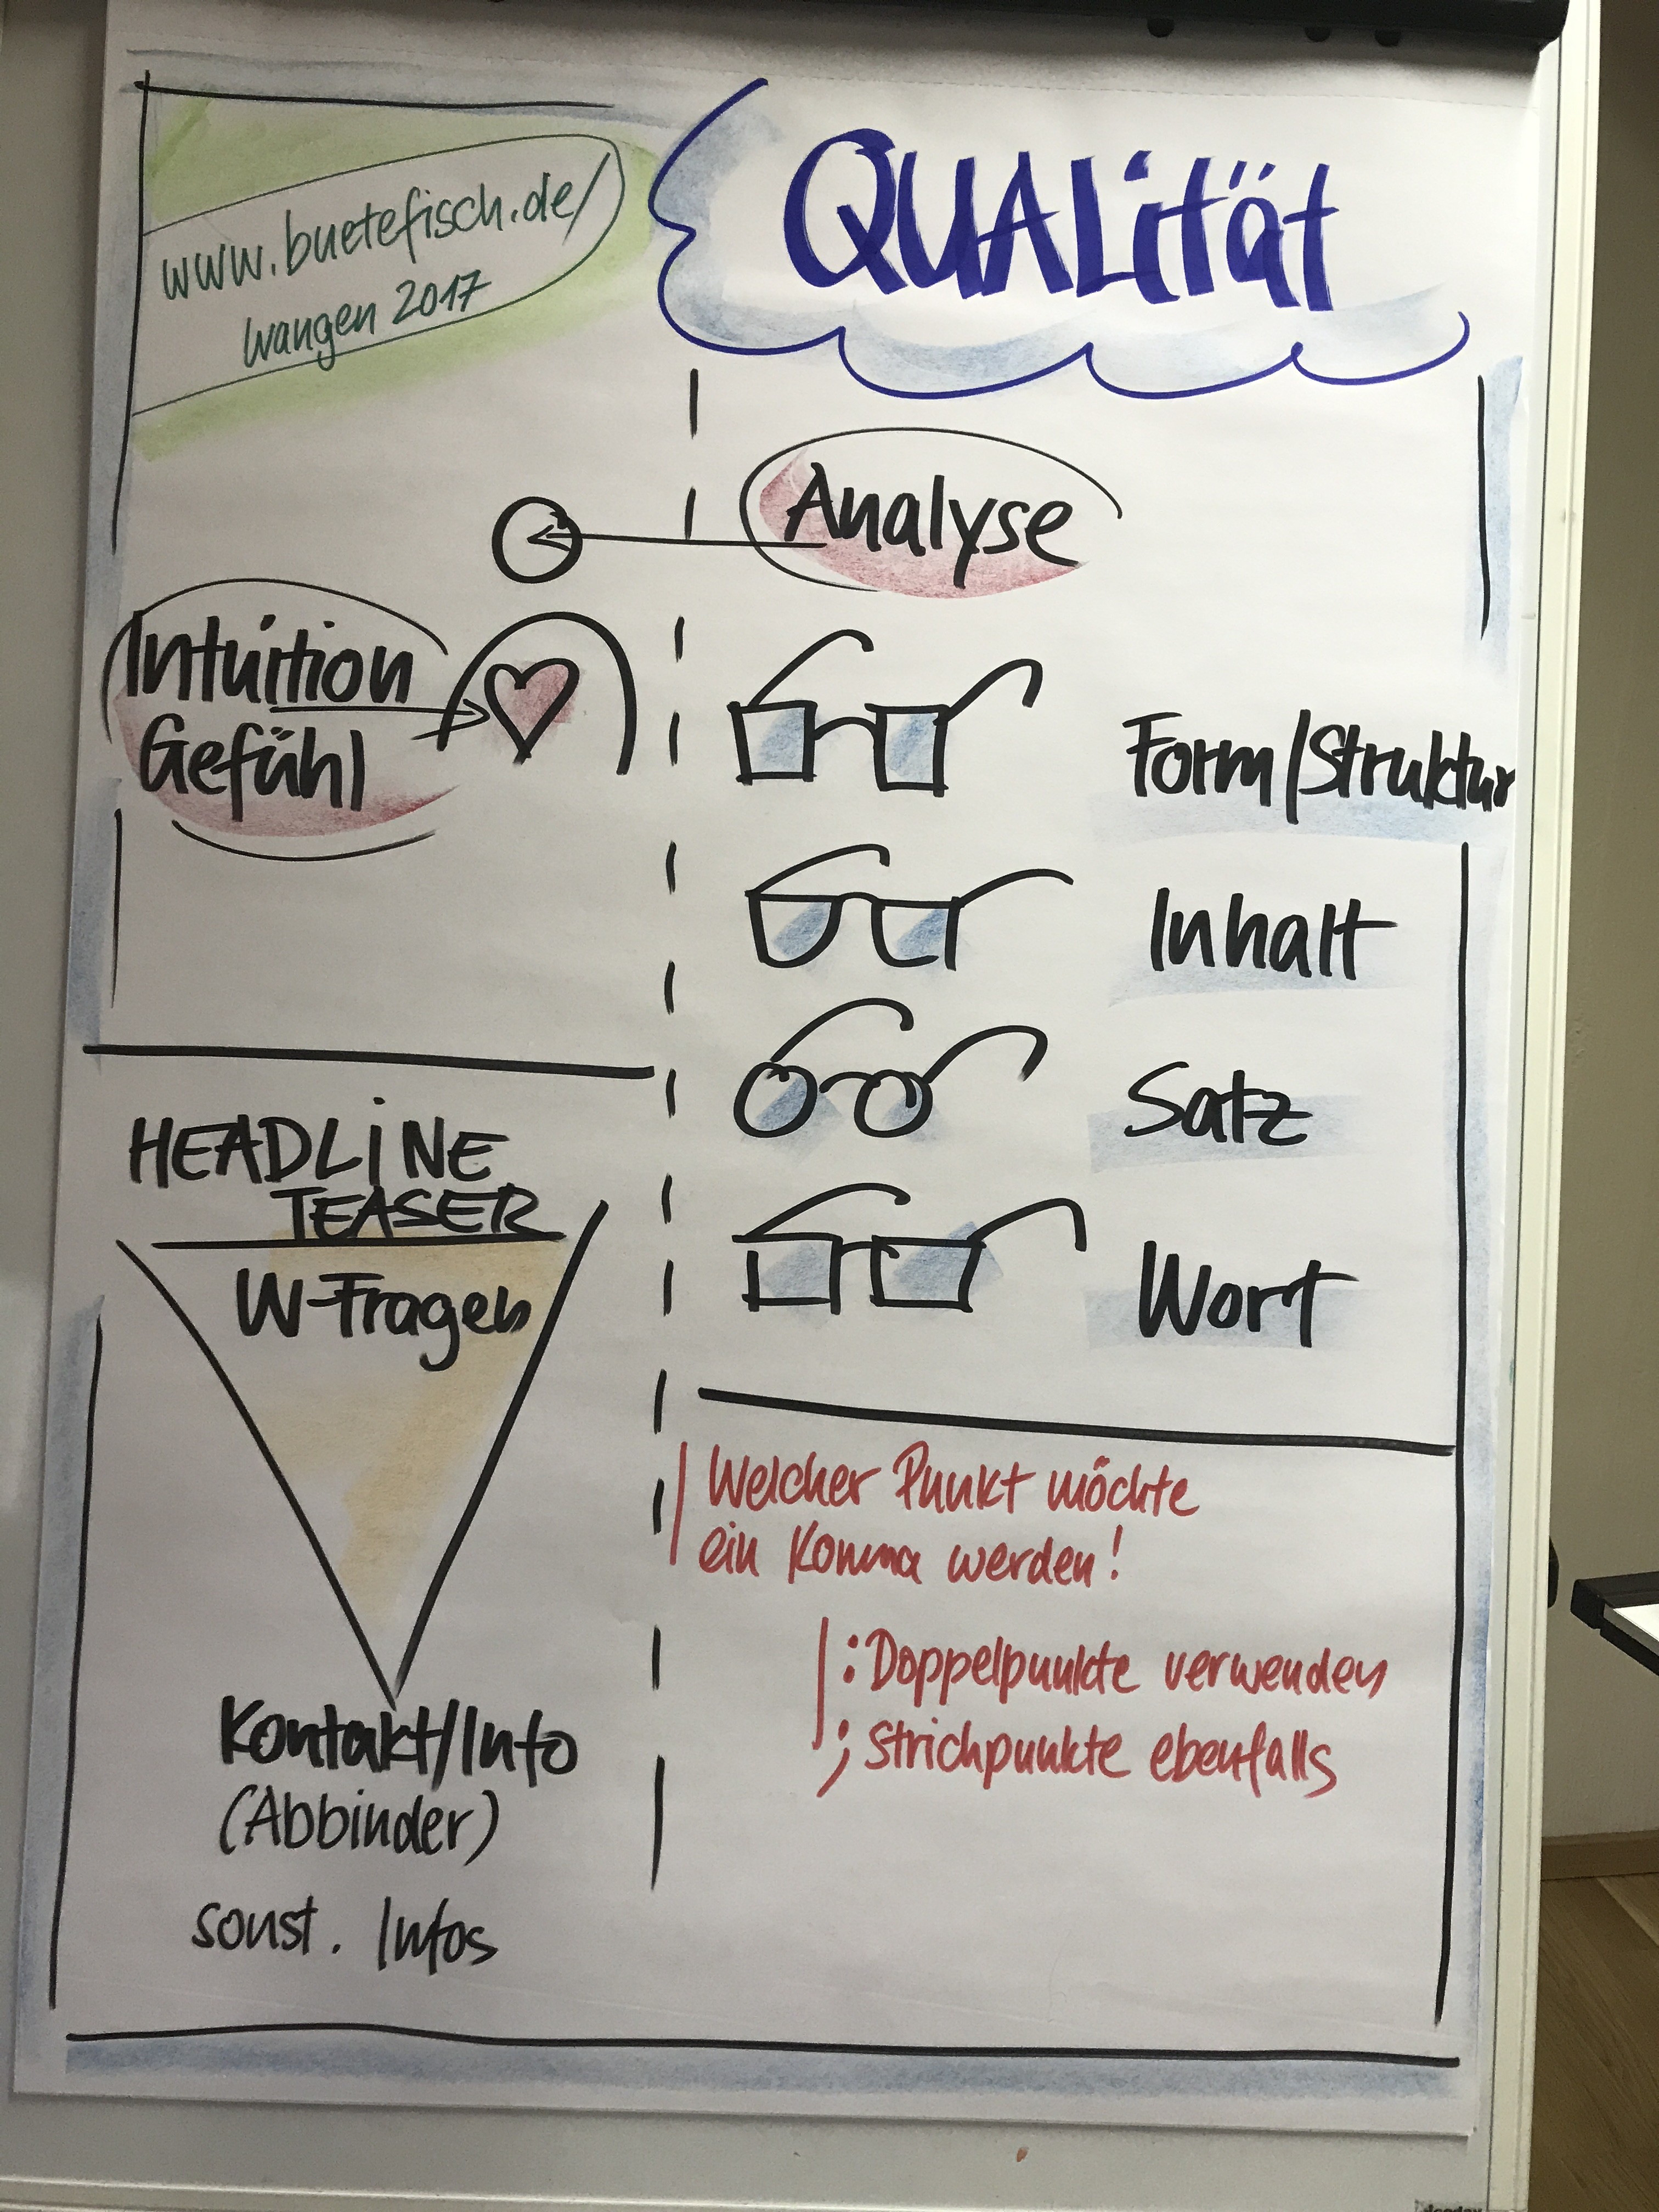 www.buetefisch.de/
wangen 2017
QUALität
Analyse
Intuition
Gefühl
Form/Struktur
Inhalt
Satz
Wort
HEADLiNE
TEASER
W-Fragen
Kontakt/Info
(Abbinder)
sonst. Infos
Welcher Punkt möchte
ein Komma werden!
: Doppelpunkte verwenden
; Strichpunkte ebenfalls